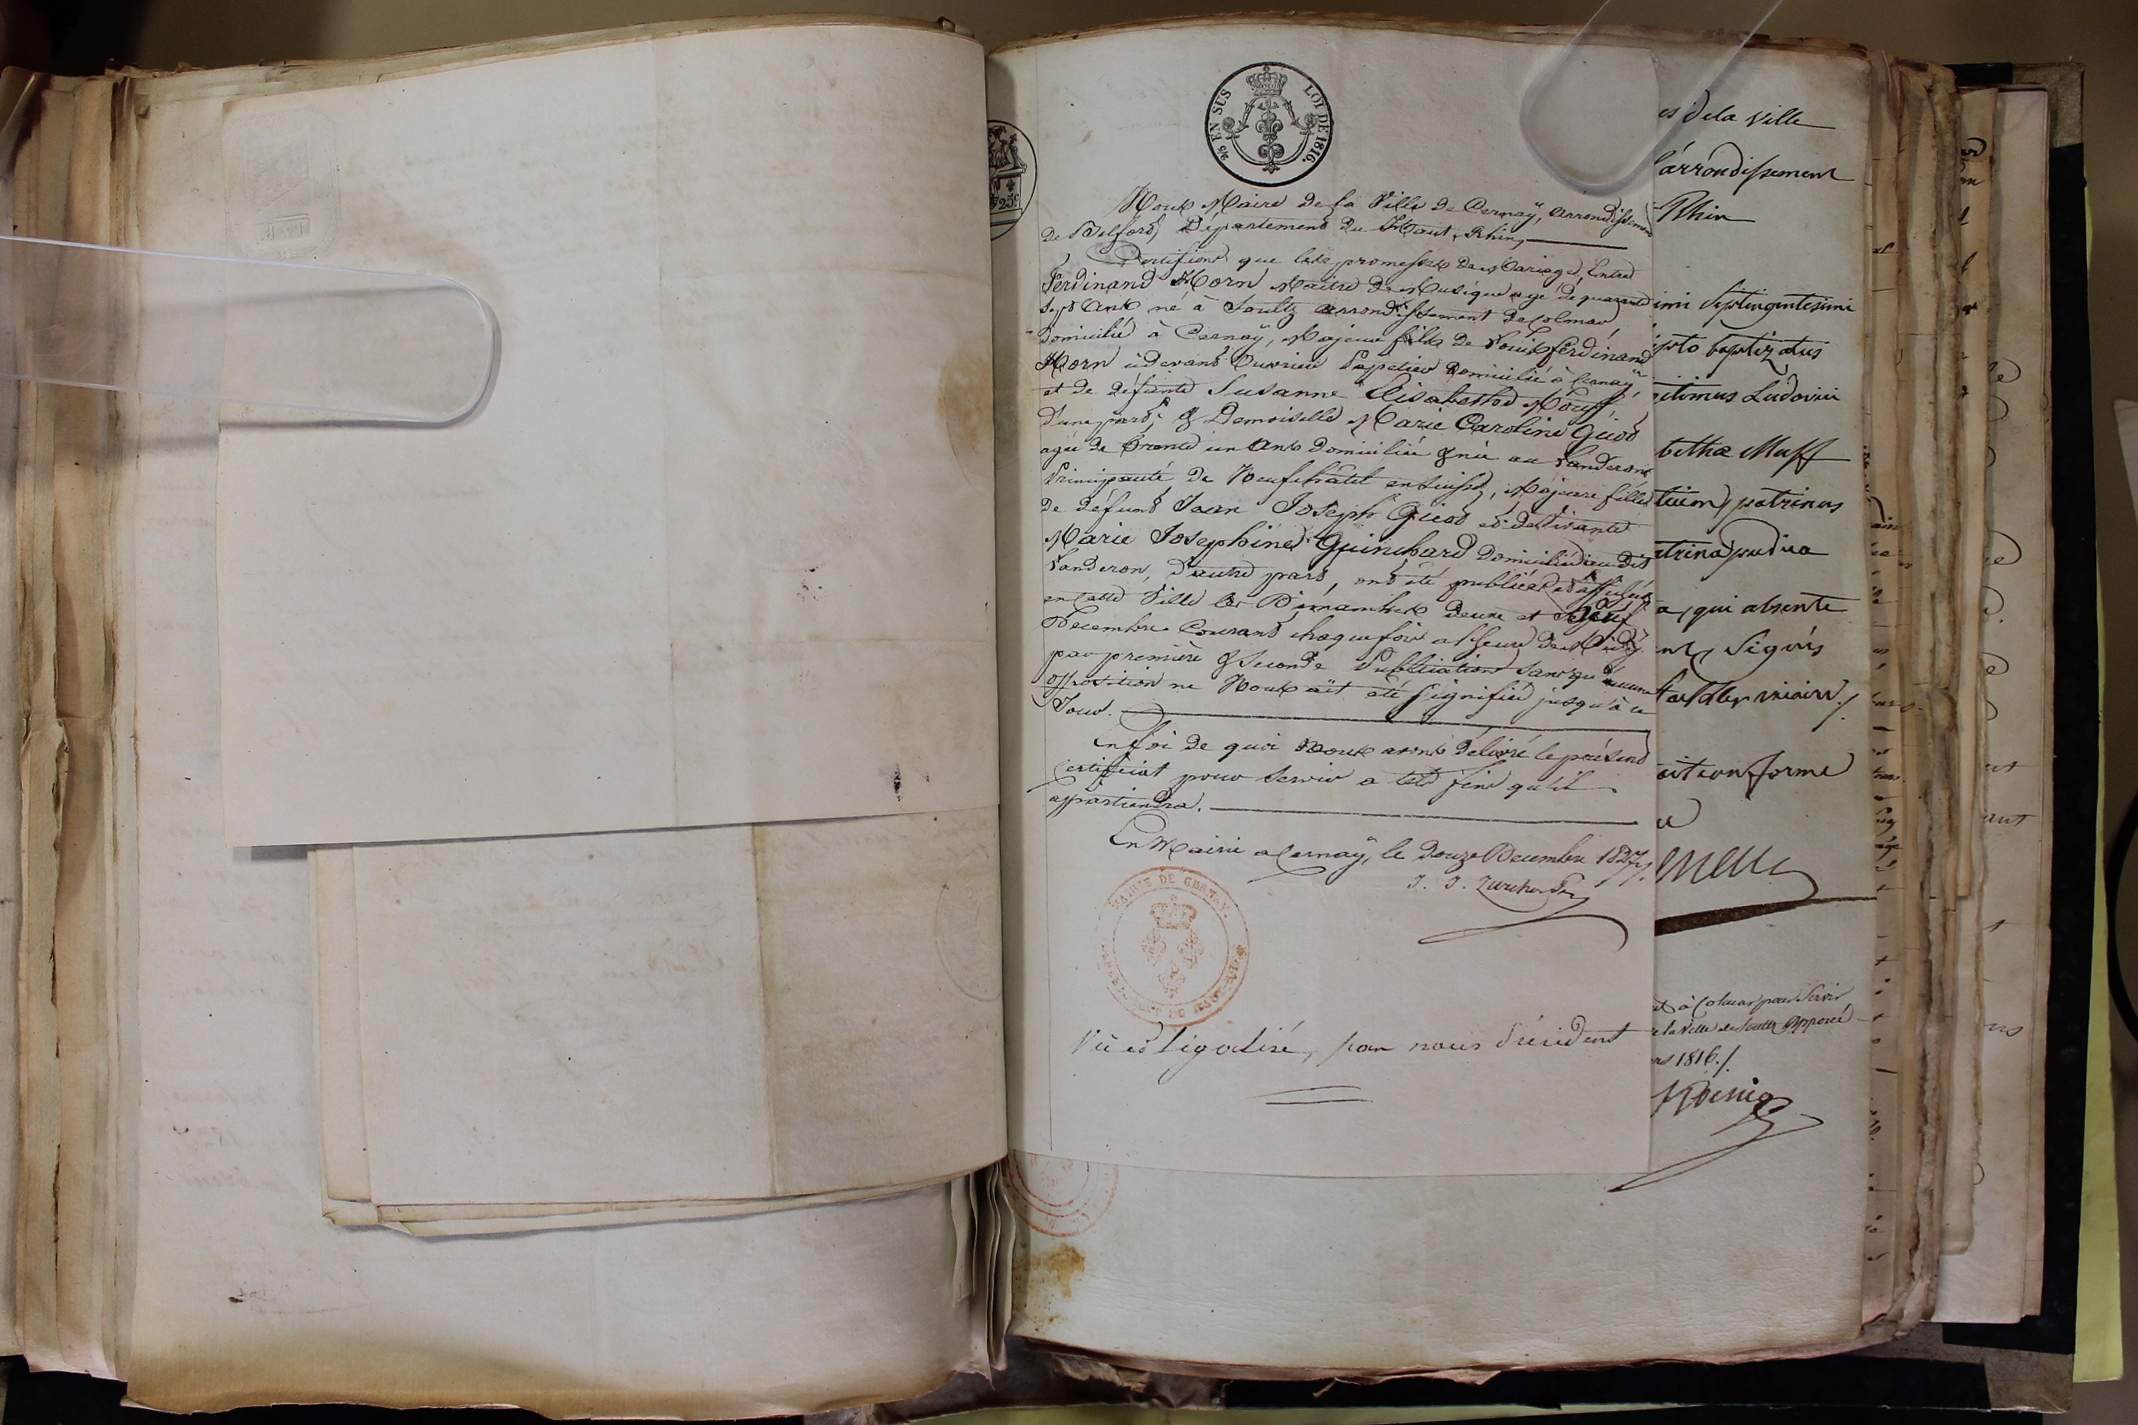 ⅖ EN SUS
LOI DE 1816.
25c.
Nous Maire de la Ville de Cernaÿ, arrondissement
de Belford, Département du Haut Rhin,
Certifions que les promesses de Mariage, Entre
Ferdinand Horn Maitre de Musique agé de quarante
sept Ans né à Soultz arrondissement de Colmar
domicilié à Cernaÿ, Majeur fils de Louis ferdinand
Horn cidevant Ouvrier Papetier domicilié à Cernaÿ
et de défunte Susanne Elisabethe Mouff,
d'une part; & Demoiselle Marie Caroline Gicot
agée de trente un Ans domiciliée & née au Landeron
Principauté de Neufchatel en Suisse, Majeure fille
de défunt Jean Joseph Gicot et de vivante
Marie Josephine Guinchard domiciliée au dit
Landeron, d'autre part, ont été publiées et affichées
en Cette Ville les Dimanches deux et neuf
Decembre Courant chaque fois a l'heure de Midy
par première & seconde Publication sans qu'aucune
opposition ne Nous ait été signifiée jusqu'à ce
Jour.
En foi de quoi Nous avons délivré le présent
Certificat pour servir a telle fins qu'il
appartiendra.
En Mairie a Cernaÿ, le douze Decembre 1827.
J. J. Zurcher
MAIRIE DE CERNAY.
Vu et légalisé, par nous Président
es de la Ville
l'arrondissement
Rhin
imi Septingentesimi
pto baptizatus
itimus Ludovici
bethæ Muff
patrinus
trina pudica
a, qui absente
signis
oit conforme
à Colmar pour Servir
e la Ville de Soultz Apposée
rs 1816./.
Koenig